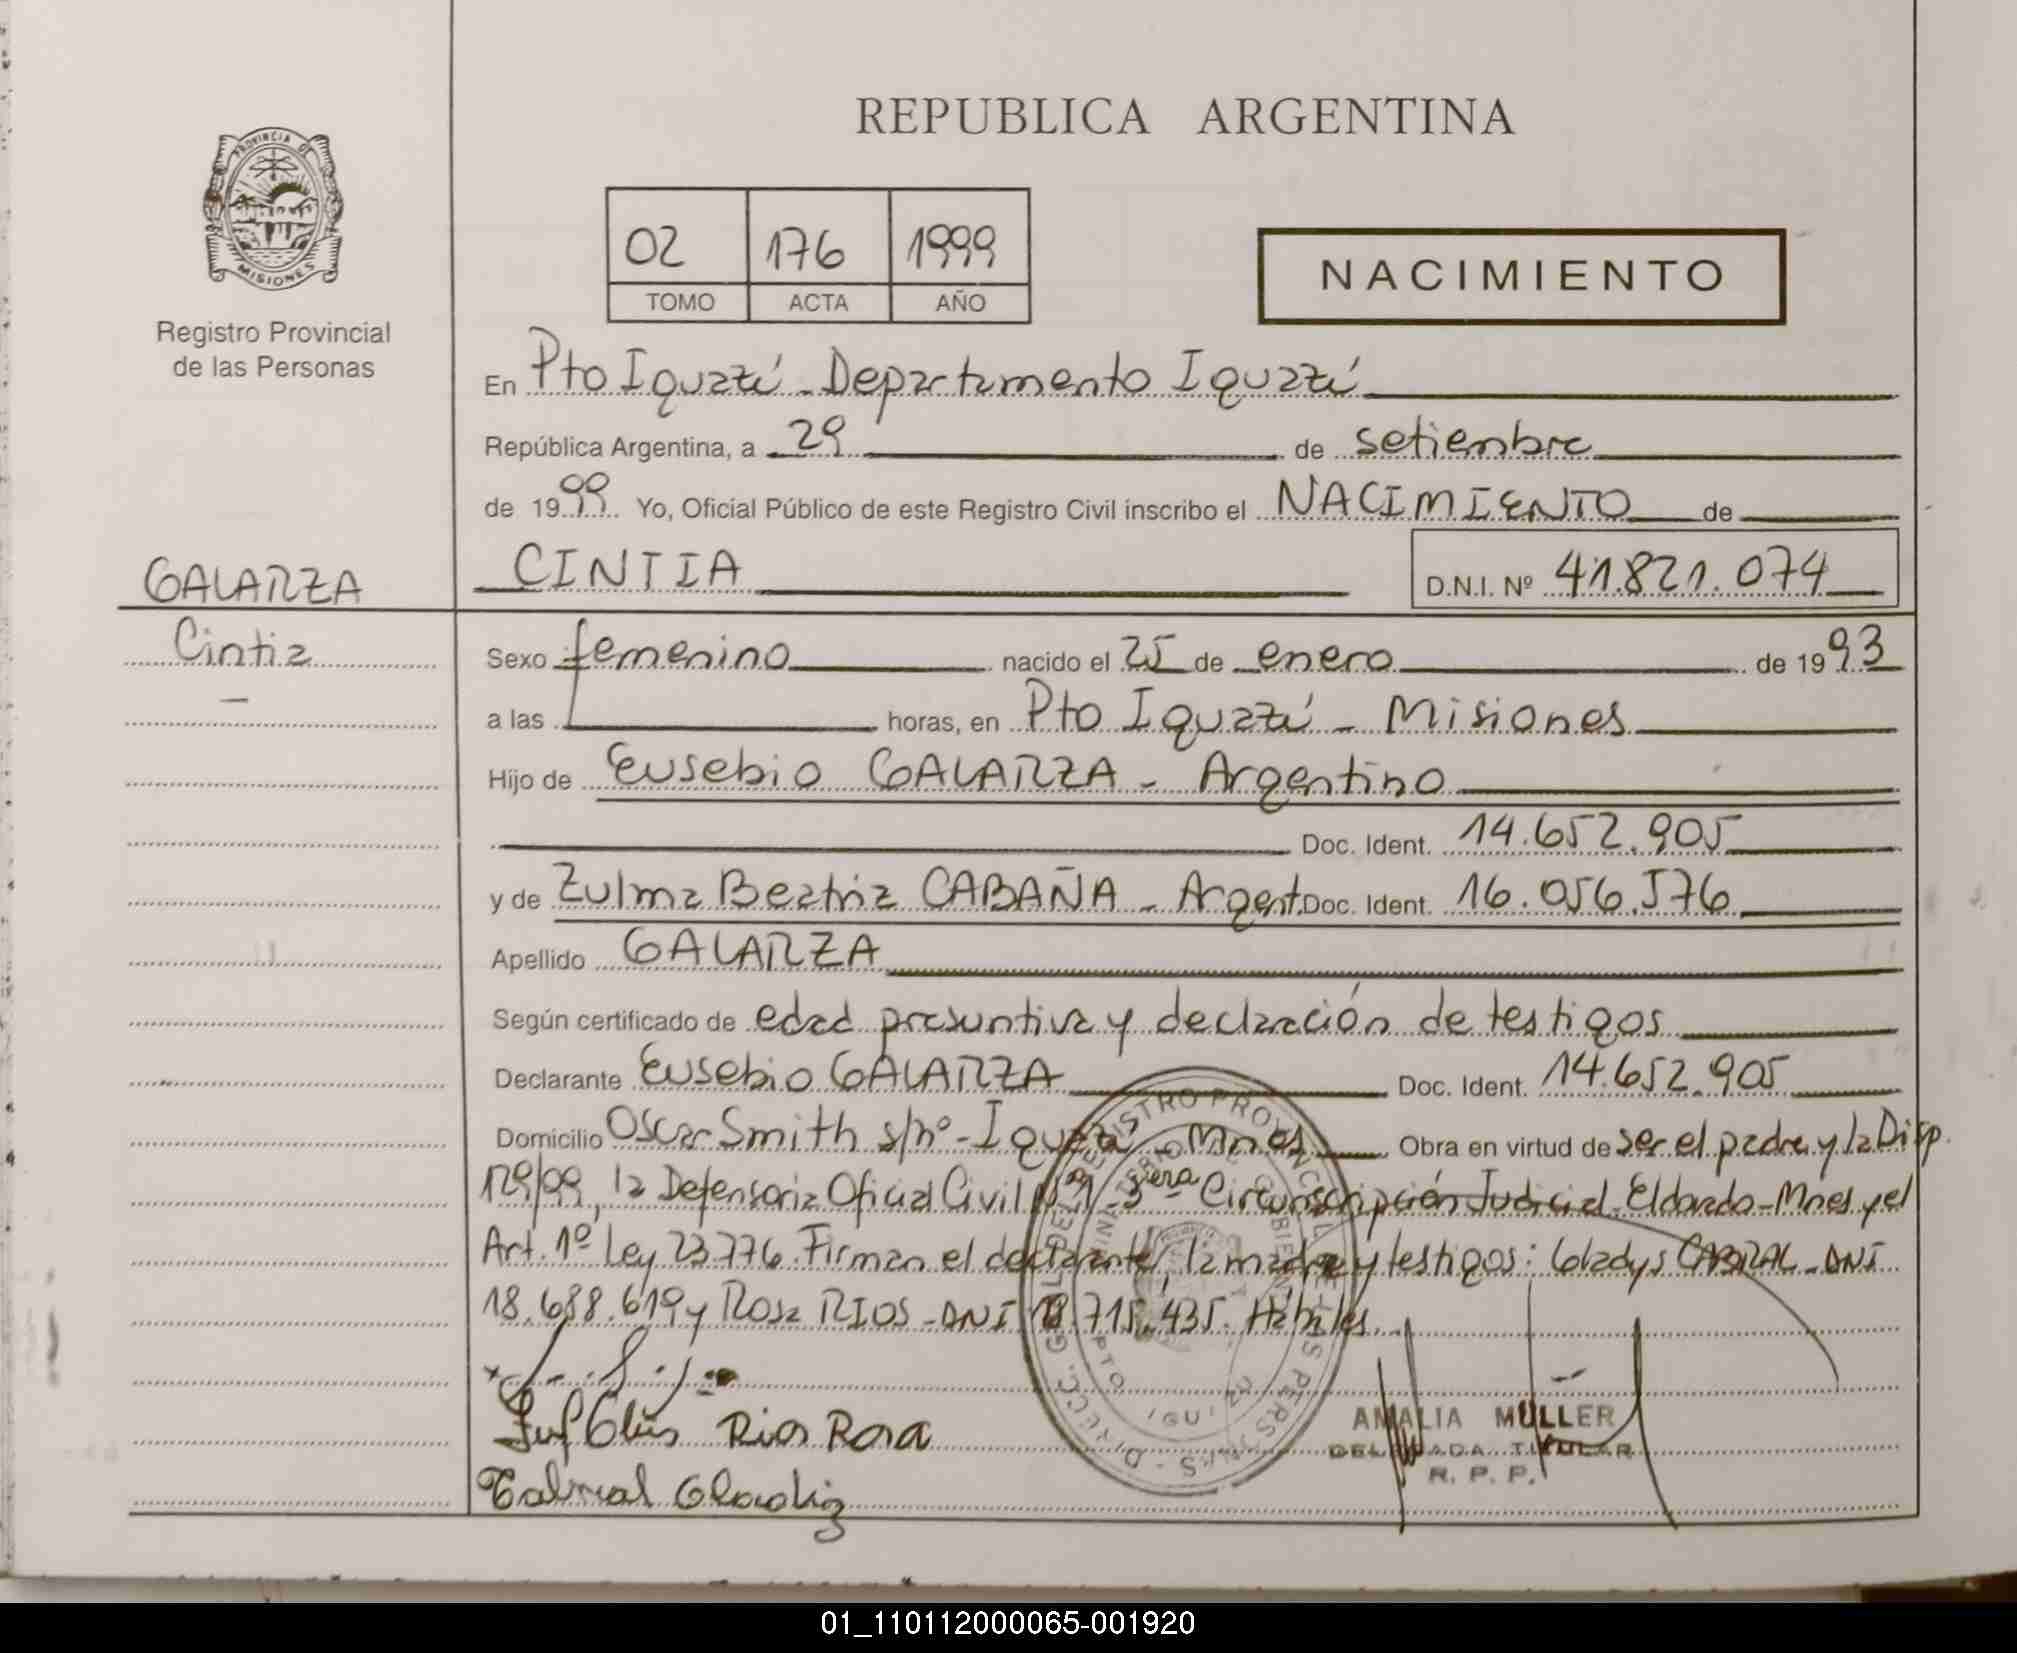 REPUBLICA ARGENTINA
PROVINCIA DE
MISIONES
Registro Provincial
de las Personas
02 176 1999
TOMO ACTA AÑO
NACIMIENTO
En Pto Iguazú - Departamento Iguazú
República Argentina, a 29 de setiembre
de 1999 Yo, Oficial Público de este Registro Civil inscribo el NACIMIENTO de
GALARZA
CINTIA D.N.I. Nº 41.821.074
Cintia
Sexo femenino nacido el 25 de enero de 1993
a las horas, en Pto Iguazú - Misiones
Hijo de Eusebio GALARZA - Argentino
Doc. Ident. 14.652.905
y de Zulma Beatriz CABAÑA - Argent. Doc. Ident. 16.056.576
Apellido GALARZA
Según certificado de edad presuntiva y declaración de testigos
Declarante Eusebio GALARZA Doc. Ident. 14.652.905
Domicilio Oscar Smith s/nº - Iguazú Mnes Obra en virtud de ser el padre y la Disp.
129/99, la Defensoria Oficial Civil Nº 1 3era Circunscripción Judicial - Eldorado - Mnes y el
Art. 1º Ley 23.776. Firman el declarante, la madre y testigos: Gladys CABRAL - DNI
18.688.619 y Rosa RIOS - DNI 18.715.435. Hábiles.
Rios Rosa
Cabral Gladiz
AMALIA MULLER
DELEGADA TITULAR
R. P. P.
01_110112000065-001920